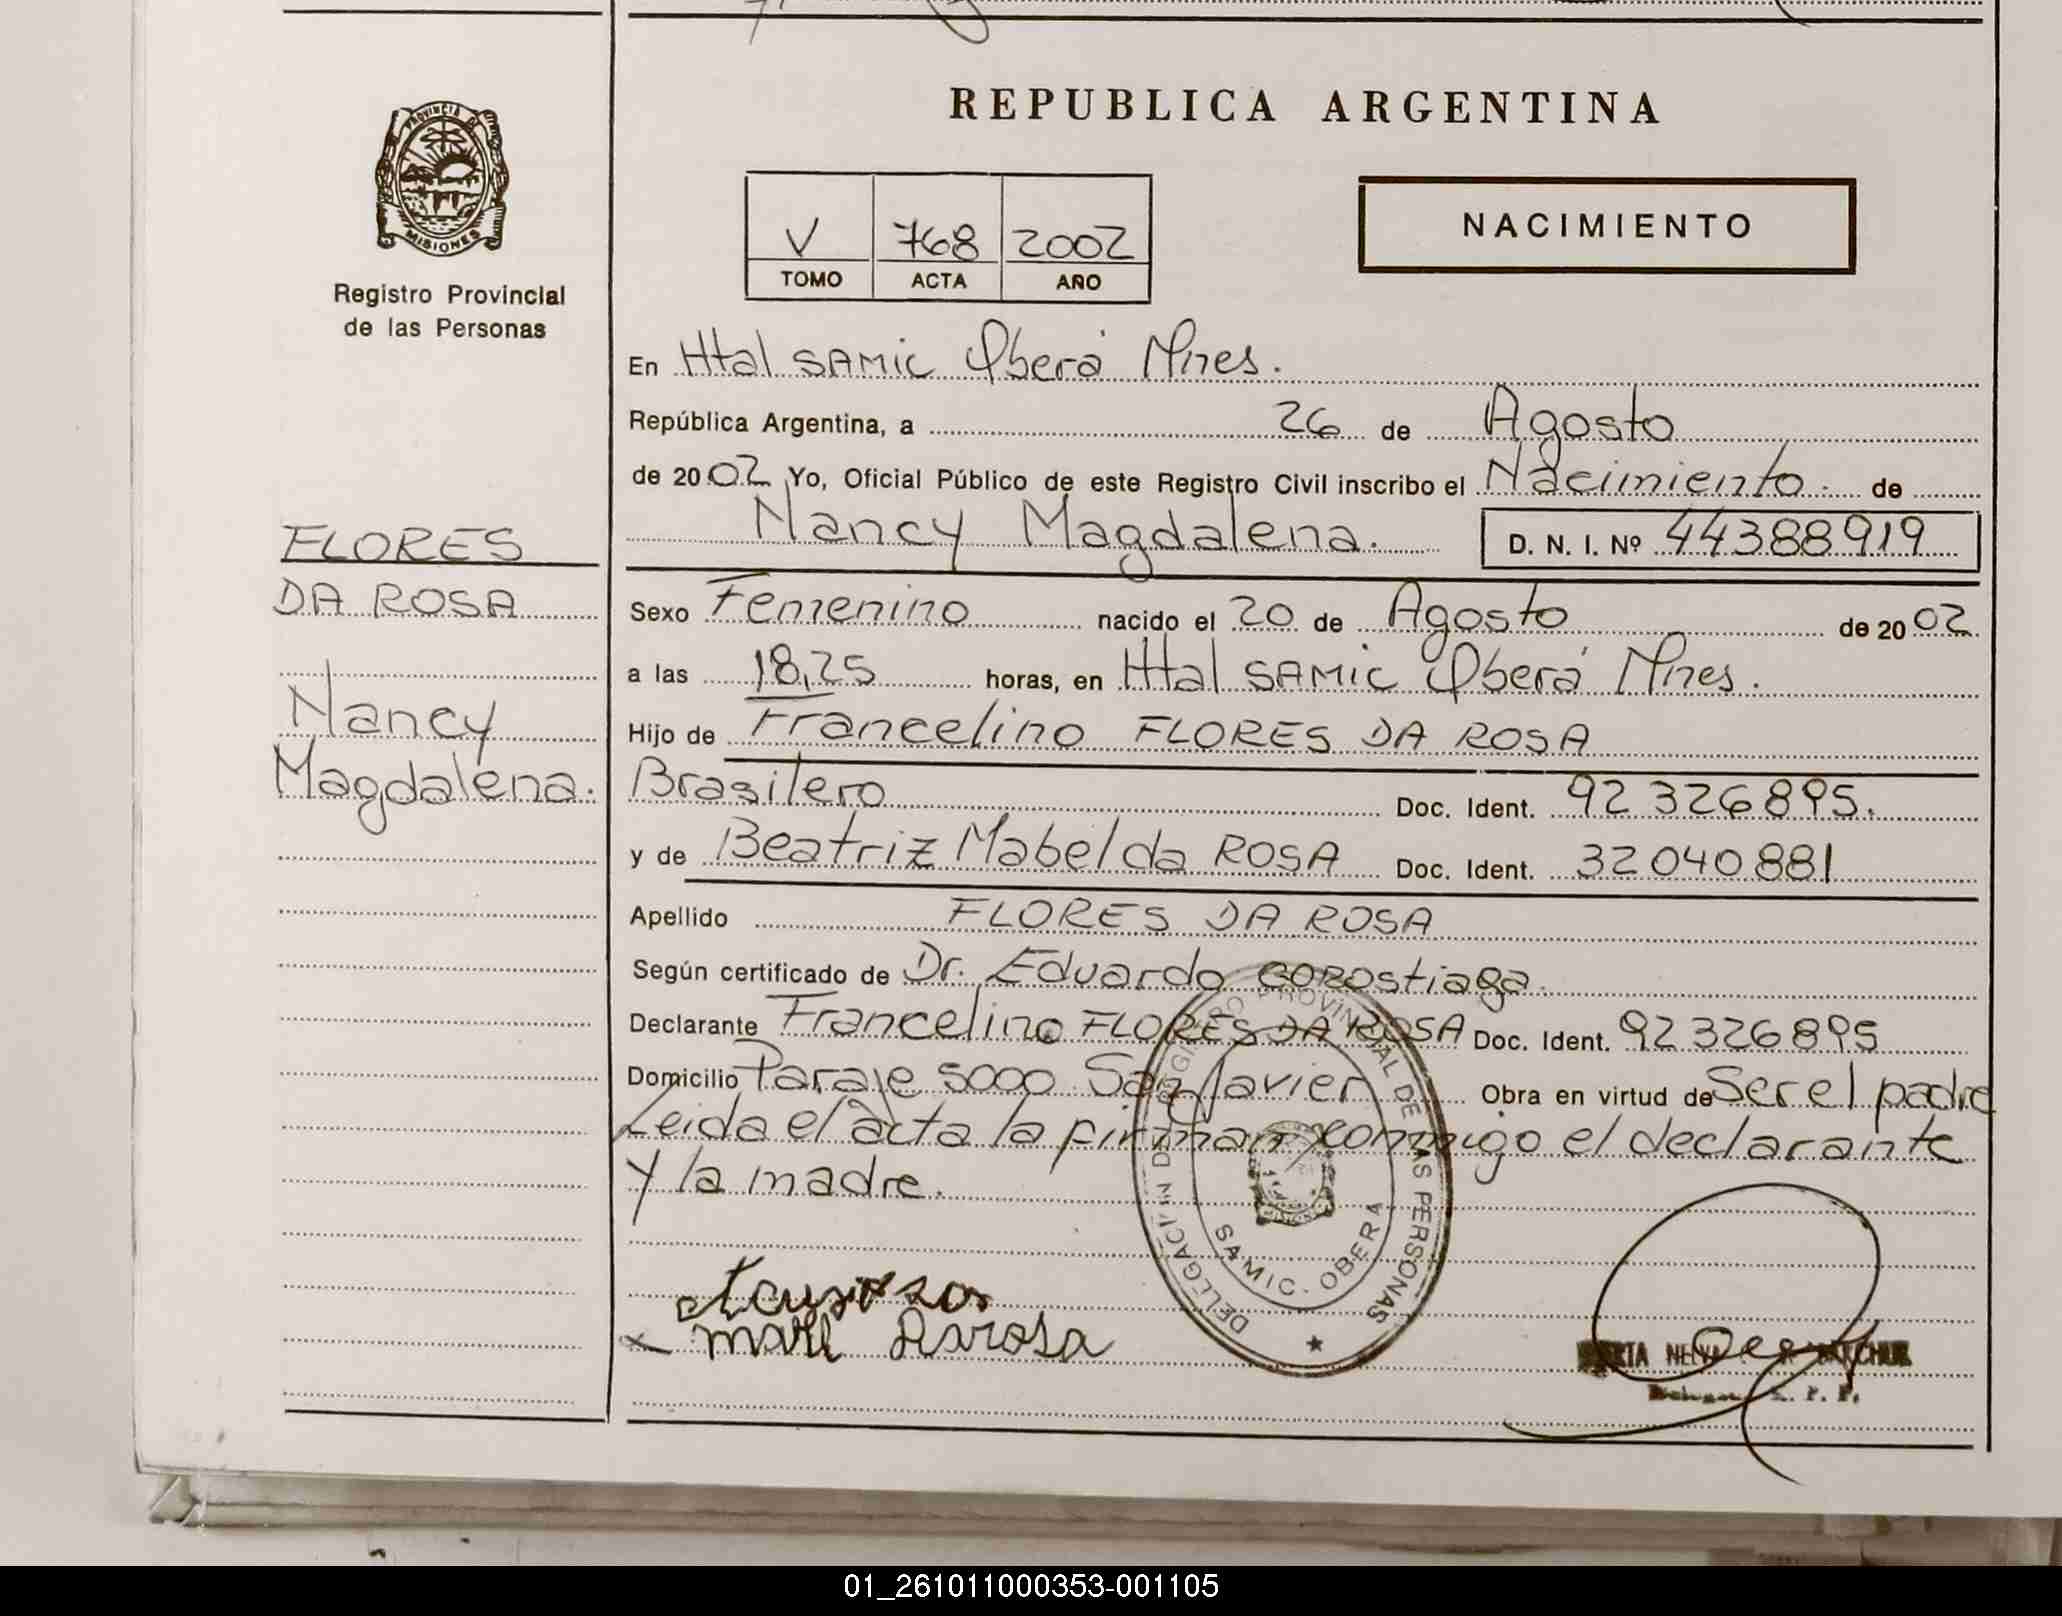 REPUBLICA ARGENTINA
PROVINCIA DE
MISIONES
Registro Provincial
de las Personas
V 768 2002
TOMO ACTA AÑO
NACIMIENTO
En Htal SAMIC Oberá Mnes.
República Argentina, a 26 de Agosto
de 2002 Yo, Oficial Público de este Registro Civil inscribo el Nacimiento. de
Nancy Magdalena. D. N. I. Nº 44388919
FLORES
DA ROSA
Nancy
Magdalena.
Sexo Femenino nacido el 20 de Agosto de 2002
a las 18,25 horas, en Htal SAMIC Oberá Mnes.
Hijo de Francelino FLORES DA ROSA
Brasilero Doc. Ident. 92 326 895.
y de Beatriz Mabel da ROSA Doc. Ident. 32 040 881
Apellido FLORES DA ROSA
Según certificado de Dr. Eduardo GOROstiaga.
Declarante Francelino FLORES DA ROSA Doc. Ident. 92 326 895
Domicilio Paraje 5000 San Javier Obra en virtud de Ser el padre
Leida el acta la firman conmigo el declarante
y la madre.
DELEGACION DE REGISTRO PROVINCIAL DE LAS PERSONAS
SAMIC. OBERA
Darosa
01_261011000353-001105